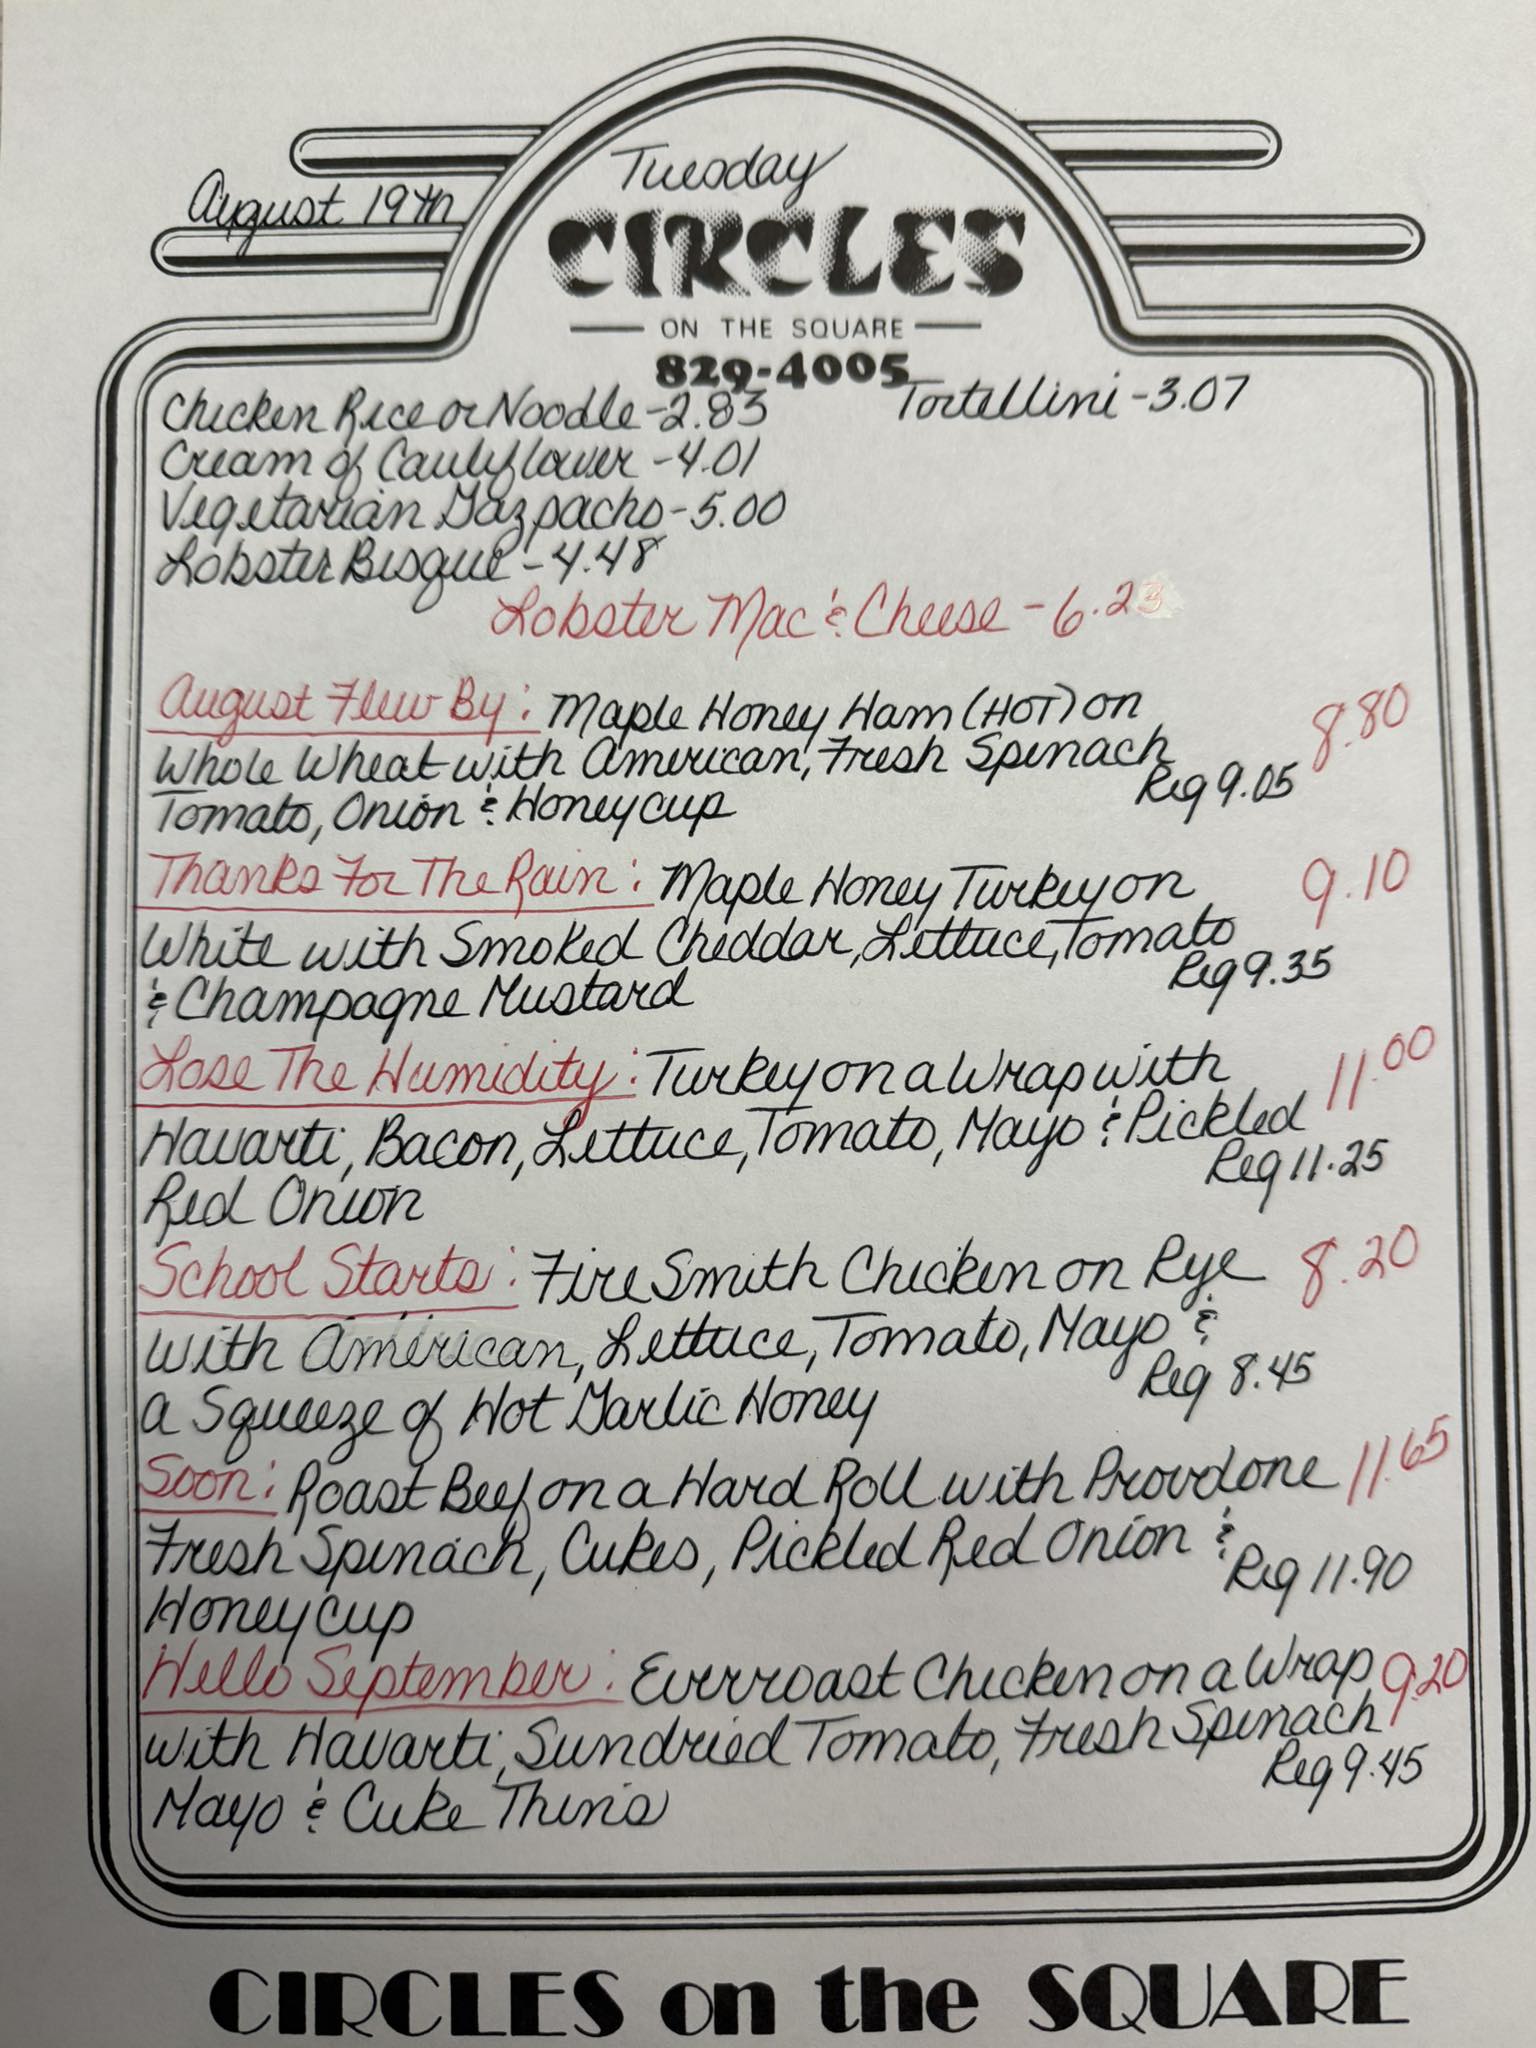 Tuesday
August 19th
CIRCLES
ON THE SQUARE
829-4005
Chicken Rice or Noodle - 2.83 Tortellini - 3.07
Cream of Cauliflower - 4.01
Vegetarian Gazpacho - 5.00
Lobster Bisque - 4.48
Lobster Mac & Cheese - 6.23
August Flew By: Maple Honey Ham (HOT) on 8.80
Whole Wheat with American, Fresh Spinach
Reg 9.05
Tomato, Onion & Honeycup
Thanks For The Rain: Maple Honey Turkey on 9.10
White with Smoked Cheddar, Lettuce, Tomato
Reg 9.35
& Champagne Mustard
Lose The Humidity: Turkey on a Wrap with 11.00
Havarti, Bacon, Lettuce, Tomato, Mayo & Pickled
Reg 11.25
Red Onion
School Starts: Fire Smith Chicken on Rye 8.20
with American, Lettuce, Tomato, Mayo &
Reg 8.45
a Squeeze of Hot Garlic Honey
Soon: Roast Beef on a Hard Roll with Provolone 11.65
Fresh Spinach, Cukes, Pickled Red Onion &
Reg 11.90
Honeycup
Hello September: Everroast Chicken on a Wrap 9.20
with Havarti, Sundried Tomato, Fresh Spinach
Reg 9.45
Mayo & Cuke Thins
CIRCLES on the SQUARE